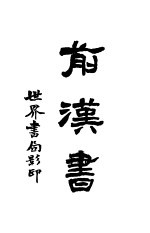 前漢書
世界書局影印